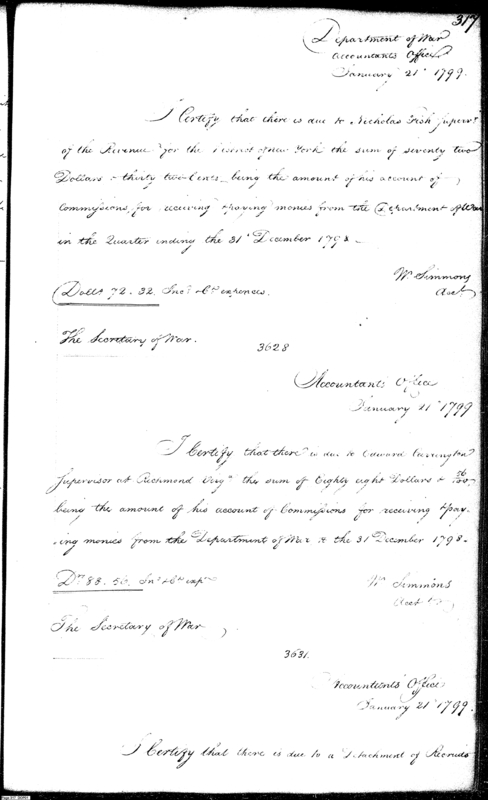 317
Department of War
Accountants Office
January 21st 1799.
I Certify that there is due to Nicholas Fish Supervr
of the Revenue for the District of New York the sum of seventy two
Dollars & thirty two Cents, being the amount of his account of
Commissions, for receiving & paying monies from the Department of War
in the Quarter ending the 31st December 1798.
Wm Simmons
Acct
Dolls 72.32. Inc: & Ct expences.
The Secretary of War.
3628
Accountants Office
January 21st 1799
I Certify that there is due to Edward Carrington
Supervisor at Richmond Virga the sum of Eighty eight Dollars & 56/100
being the amount of his account of Commissions for receiving & pay
ing monies from the Department of War to the 31 December 1798.
Drs 88.56. Inc & Ct exps
Wm Simmons
Acct
The Secretary of War
3631.
Accountants Office
January 21st 1799.
I Certify that there is due to a Detachment of Recruits